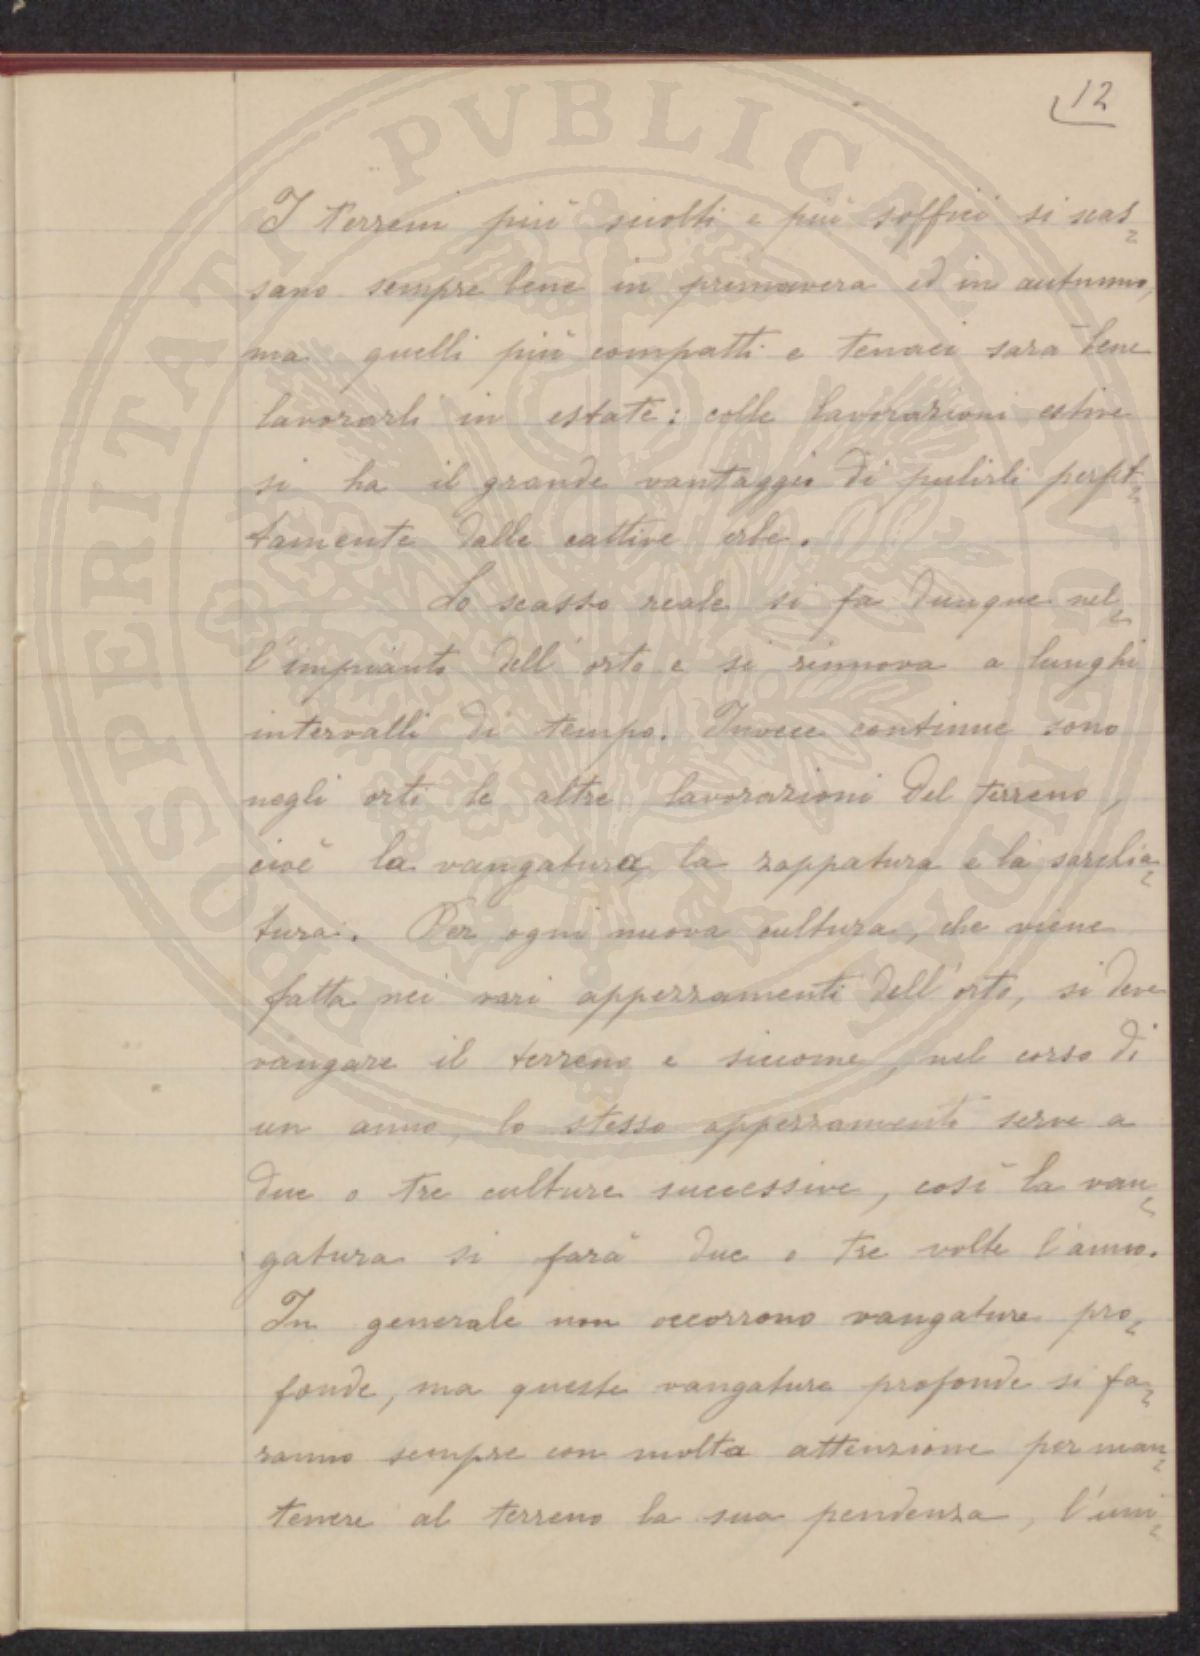 12
I terreni più sciolti e più soffici si scas-
sano sempre bene in primavera ed in autunno,
ma quelli più compatti e tenaci sarà bene
lavorarli in estate: colle lavorazioni estive
si ha il grande vantaggio di pulirli perfet-
tamente dalle cattive erbe.
Lo scasso reale si fa dunque nel-
l'impianto dell'orto e si rinnova a lunghi
intervalli di tempo. Invece continue sono
negli orti le altre lavorazioni del terreno,
cioè la vangatura, la zappatura e la sarchia-
tura. Per ogni nuova cultura, che viene
fatta nei vari appezzamenti dell'orto, si deve
vangare il terreno e siccome, nel corso di
un anno, lo stesso appezzamento serve a
due o tre culture successive, così la van-
gatura si farà due o tre volte l'anno.
In generale non occorrono vangature pro-
fonde, ma queste vangature profonde si fa-
ranno sempre con molta attenzione per man-
tenere al terreno la sua pendenza, l'uni-
PROSPERITATI PVBLICAE AVGENDAE